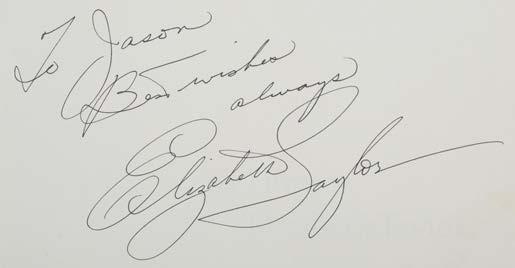 To Jason
Best wishes
always
Elizabeth Taylor